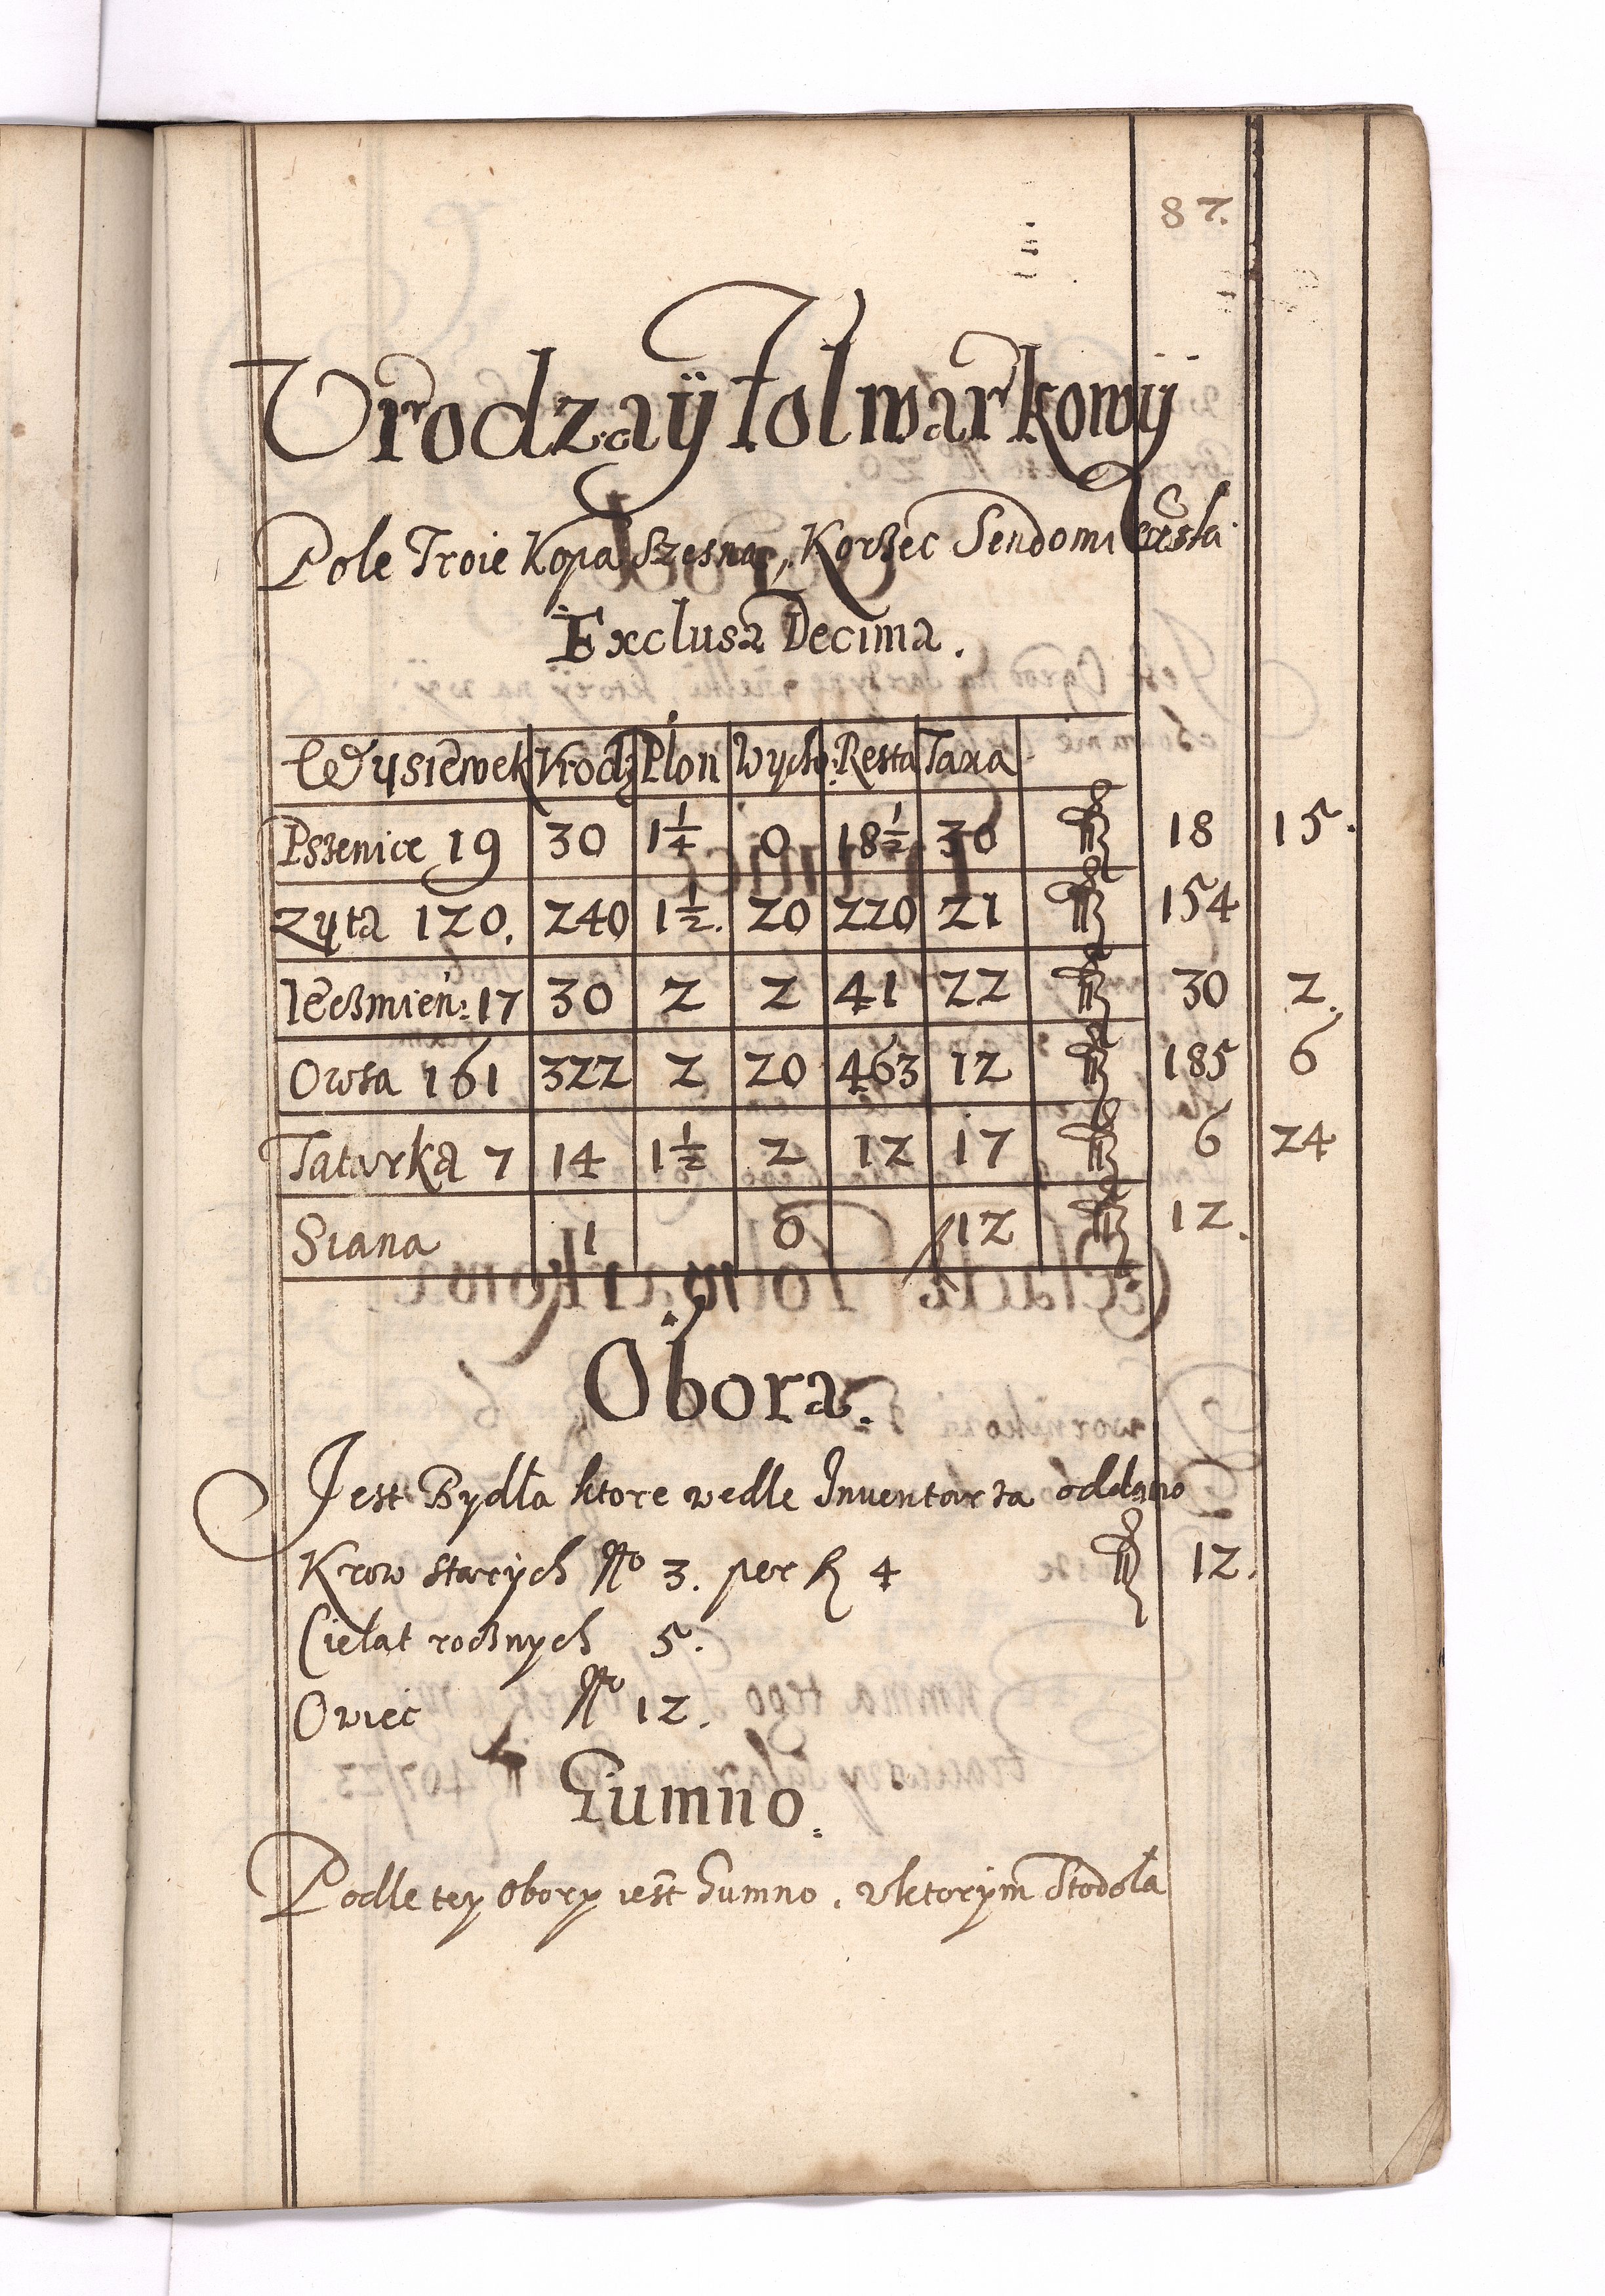 87.
Urodzaÿ folwarkowÿ
Pole Troie Kopa Szesna, Korzec Sendomi
Exclusa Decima.
Wysiewek Urodz Plon Wych: Resta Taxa
Pszenice 19 30 1 1/4 0 18 1/2 30 18 15.
Zyta 120. 240 1 1/2. 20 220 21 154
Ięczmień: 17 30 2 2 41 22 30 2.
Owsa 161 322 2 20 463 12 185 6
Tatarka 7 14 1 1/2 2 12 17 6 24
Siana 1 0 12 12.
Obora.
Jest Bydła ktore wedle Inventarza oddano
Krow starych No 3. per 4 12.
Cieląt rocznych 5.
Owiec No 12.
Gumno.
Podle tey Obory iest Gumno. vktorym Stodoła